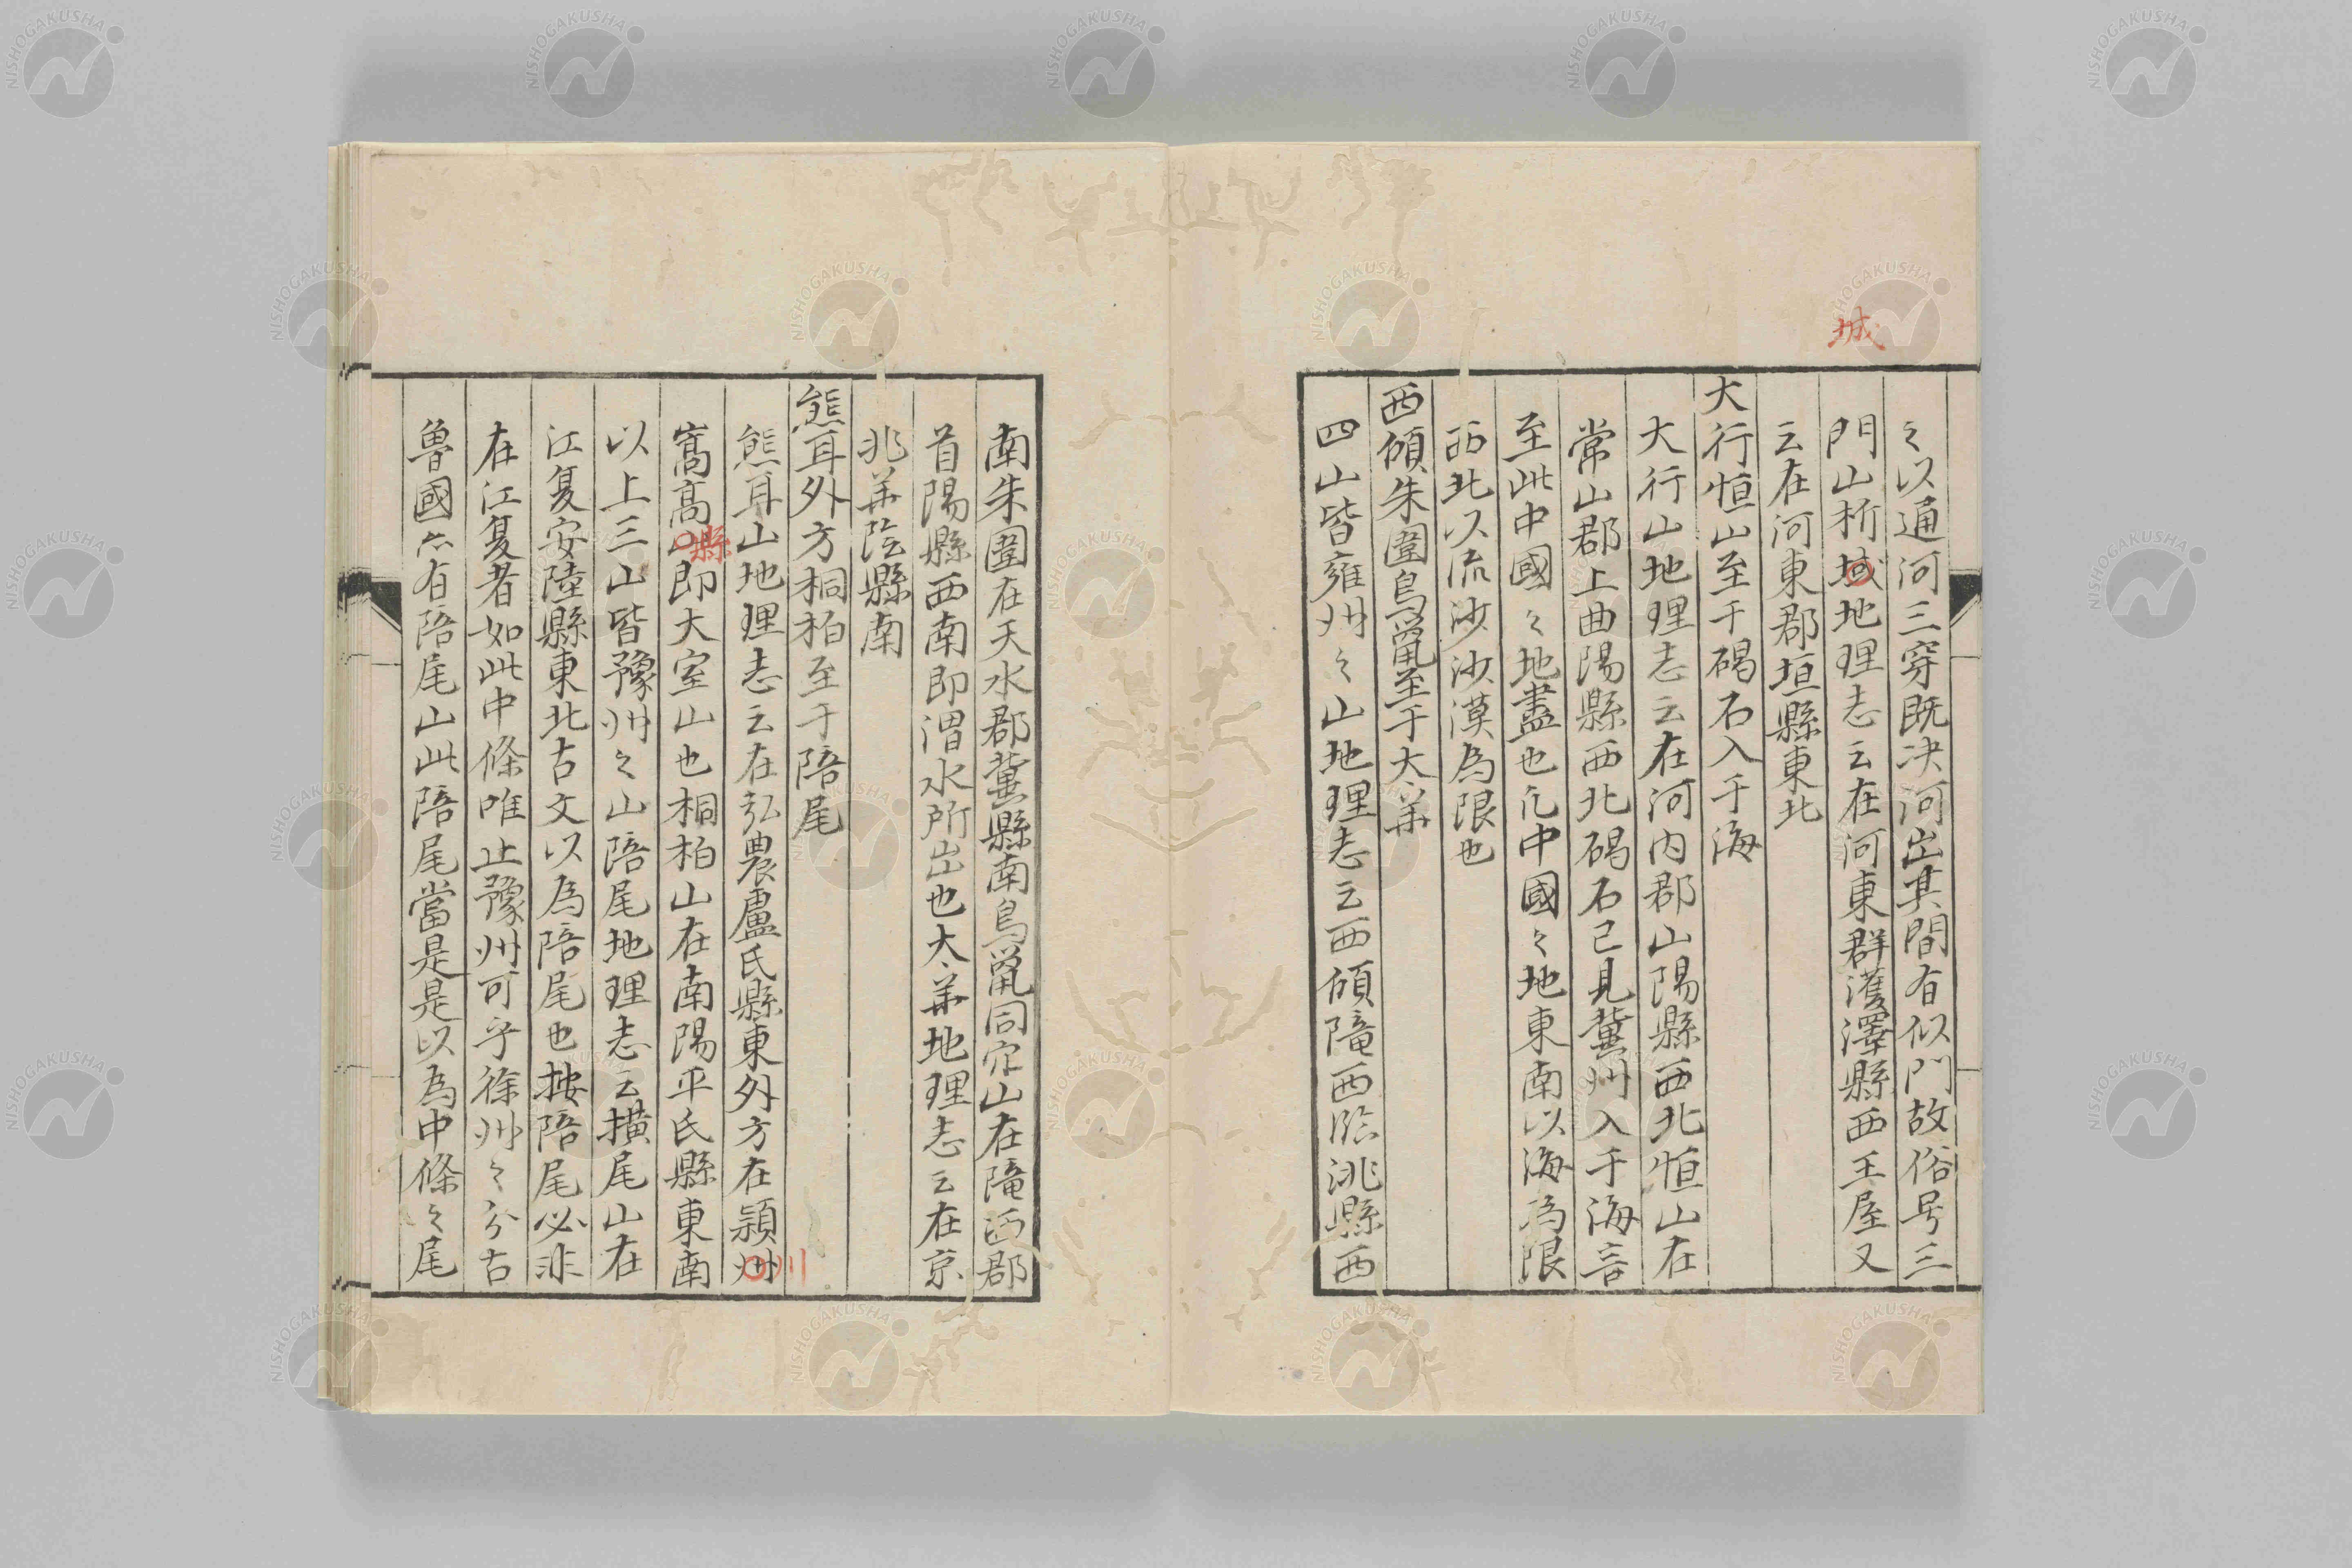 城
々以通河三穿既决河出其間有似門故俗号三
門山析域地理志云在河東群濩澤縣西王屋又
云在河東郡垣縣東北
大行恒山至于碣石入于海
大行山地理志云在河内郡山陽縣西北恒山在
常山郡上曲陽縣西北碣石已見冀州入于海言
至此中國々地盡也凡中國々地東南以海為限
西北以流沙沙漠為限也
西傾朱圉鳥鼠至于太華
四山皆雍州々山地理志云西傾隴西臨洮縣西
南朱圉在天水郡冀縣南鳥鼠同穴山在隴西郡
首陽縣西南即渭水所出也太華地理志云在京
兆華陰縣南
熊耳外方桐柏至于陪尾
熊耳山地理志云在弘農盧氏縣東外方在潁州
川
嵩高山即大室山也桐柏山在南陽平氏縣東南
縣
以上三山皆豫州々山陪尾地理志云横尾山在
江夏安陸縣東北古文以為陪尾也按陪尾必非
在江夏者如此中條唯止豫州可乎徐州々兮古
魯國亦有陪尾山此陪尾當是是以為中條々尾
NISHOGAKUSHA